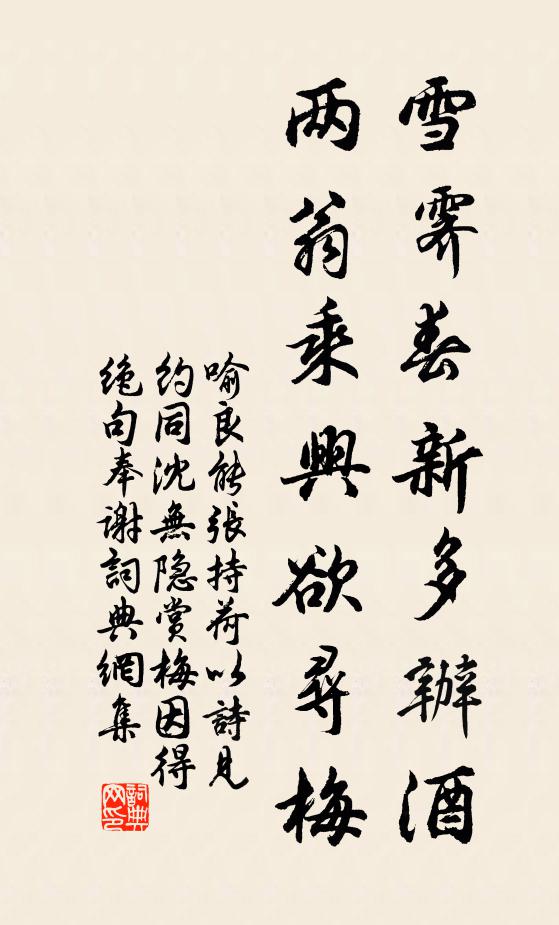 雪霽春新多辦酒
两翁乘興欲尋梅
喻良能張持荷以詩見
约同沈無隐賞梅因得
绝句奉谢詞典網集
詞典
网印